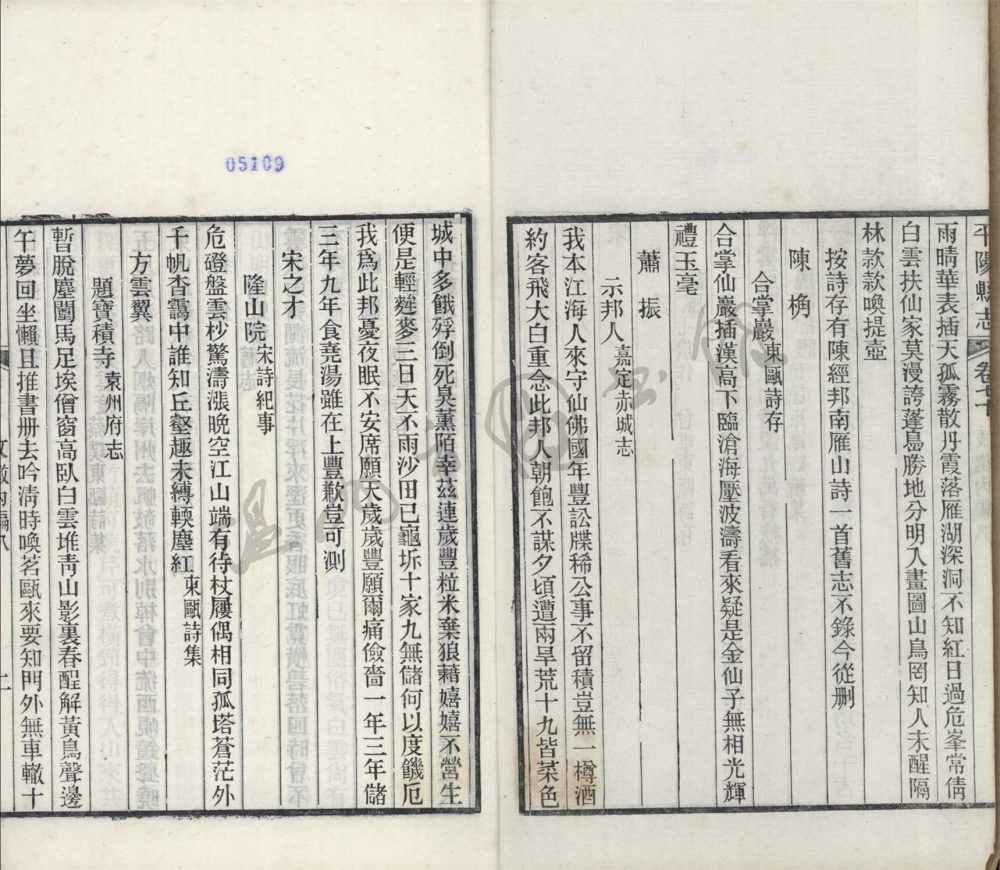 平陽縣志 卷七十
雨晴華表插天孤霧散丹霞落雁湖深洞不知紅日過危峯常倩
白雲扶仙家莫漫誇蓬島勝地分明入畫圖山鳥罔知人未醒隔
林款款喚提壺
按詩存有陳經邦南雁山詩一首舊志不錄今從刪
陳桷
合掌巖東甌詩存
合掌仙巖插漢高下臨滄海壓波濤看來疑是金仙子無相光輝
禮玉毫
蕭振
示邦人嘉定赤城志
我本江海人來守仙佛國年豐訟牒稀公事不留積豈無一樽酒
約客飛大白重念此邦人朝飽不謀夕頃遭兩旱荒十九皆菜色
城中多餓殍倒死臭薰陌幸茲連歲豐粒米棄狼藉嬉嬉不營生
便是輕麰麥三日天不雨沙田已龜坼十家九無儲何以度饑厄
我爲此邦憂夜眠不安席願天歲歲豐願爾痛儉嗇一年三年儲
三年九年食堯湯雖在上豐歉豈可測
宋之才
隆山院宋詩紀事
危磴盤雲杪驚濤漲晚空江山端有待杖屨偶相同孤塔蒼茫外
千帆杳靄中誰知丘壑趣未縛輭塵紅東甌詩集
方雲翼
題寶積寺袁州府志
暫脫塵闤馬足埃僧窗高臥白雲堆靑山影裏春酲解黃鳥聲邊
午夢回坐懶且推書册去吟淸時喚茗甌來要知門外無車轍十
文徵內編八
二
05109